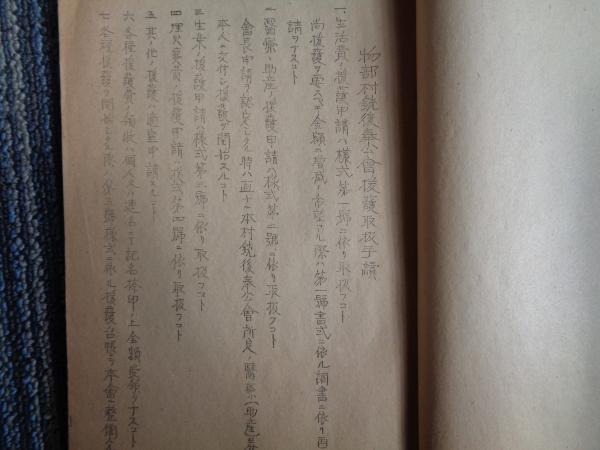 物部村銃後奉公會援護取扱手續
一、生活費ノ援護申請ハ様式第一號ニ依リ取扱フコト
尚援護ヲ要スベキ金額ニ増減ノ希望アル際ハ第一號書式ニ依ル調書ニ依リ再
請ヲナスコト
二、醫療、助産ノ援護申請ハ様式第二號ニ依リ取扱フコト
會長申請ヲ認定シタル時ハ直チニ本村銃後奉公會所定ノ醫療(助産)券
本人ニ交付シ援護ヲ開始スルコト
三、生業ノ援護申請ハ様式第三號ニ依リ取扱フコト
四、埋火葬費ノ援護申請ハ様式第四號ニ依リ取扱フコト
五、其ノ他ノ援護ハ適宜申請スルコト
六、各種援護費ノ領收ハ個人又ハ連名ニテ記名捺印ノ上金額受領ヲナスコト
七、各種援護ヲ開始シタル際ハ第五號様式ニ依ル援護台帳ヲ本會ニ整備